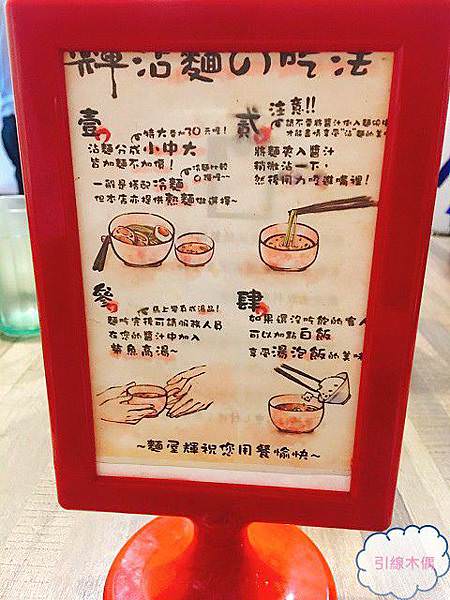 輝沾麵の吃法
壹
特大要加70元喔!
沾麵分成小中大
皆加麵不加價!
冷麵比較
Q彈喔~~
一般是搭配冷麵
但本店亦提供熱麵做選擇~
貳
注意!!
請不要將醬汁倒入麵
才能盡情享受"沾"麵的美
將麵夾入醬汁
稍微沾一下,
然後用力吸進嘴裡!
參
馬上變百成湯品!
麵吃完後可請服務人員
在您的醬汁中加入
柴魚高湯~
肆
如果還沒吃飽的客人
可以加點白飯
享受湯泡飯的美味
~麵屋輝祝您用餐愉快~
引線木偶